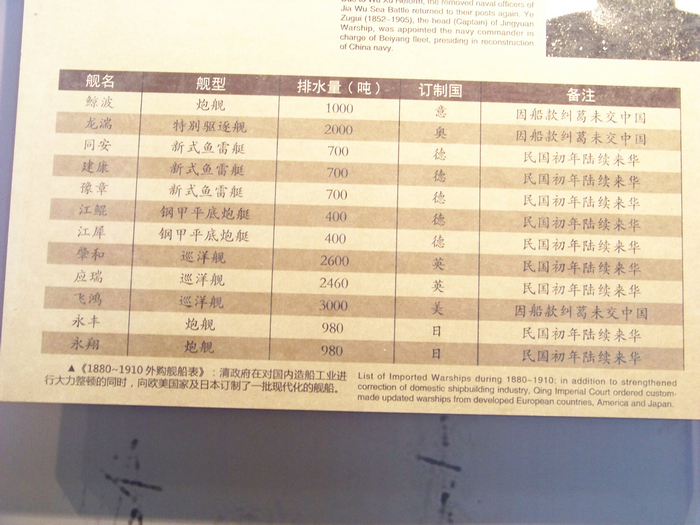 Jia Wu Sea Battle returned to their posts again. Ye
Zugui (1852~1905), the head (Captain) of Jingyuan
Warship, was appointed the navy commander in
charge of Beiyang fleet, presiding in reconstruction
of China navy.
舰名 舰型 排水量（吨） 订制国 备注
鲸波 炮舰 1000 意 因船款纠葛未交中国
龙湍 特别驱逐舰 2000 奥 因船款纠葛未交中国
同安 新式鱼雷艇 700 德 民国初年陆续来华
建康 新式鱼雷艇 700 德 民国初年陆续来华
豫章 新式鱼雷艇 700 德 民国初年陆续来华
江鲲 钢甲平底炮艇 400 德 民国初年陆续来华
江犀 钢甲平底炮艇 400 德 民国初年陆续来华
肇和 巡洋舰 2600 英 民国初年陆续来华
应瑞 巡洋舰 2460 英 民国初年陆续来华
飞鸿 巡洋舰 3000 美 因船款纠葛未交中国
永丰 炮舰 980 日 民国初年陆续来华
永翔 炮舰 980 日 民国初年陆续来华
▲《1880~1910外购舰船表》：清政府在对国内造船工业进
行大力整顿的同时，向欧美国家及日本订制了一批现代化的舰船。
List of Imported Warships during 1880~1910: in addition to strengthened
correction of domestic shipbuilding industry, Qing Imperial Court ordered custom-
made updated warships from developed European countries, America and Japan.